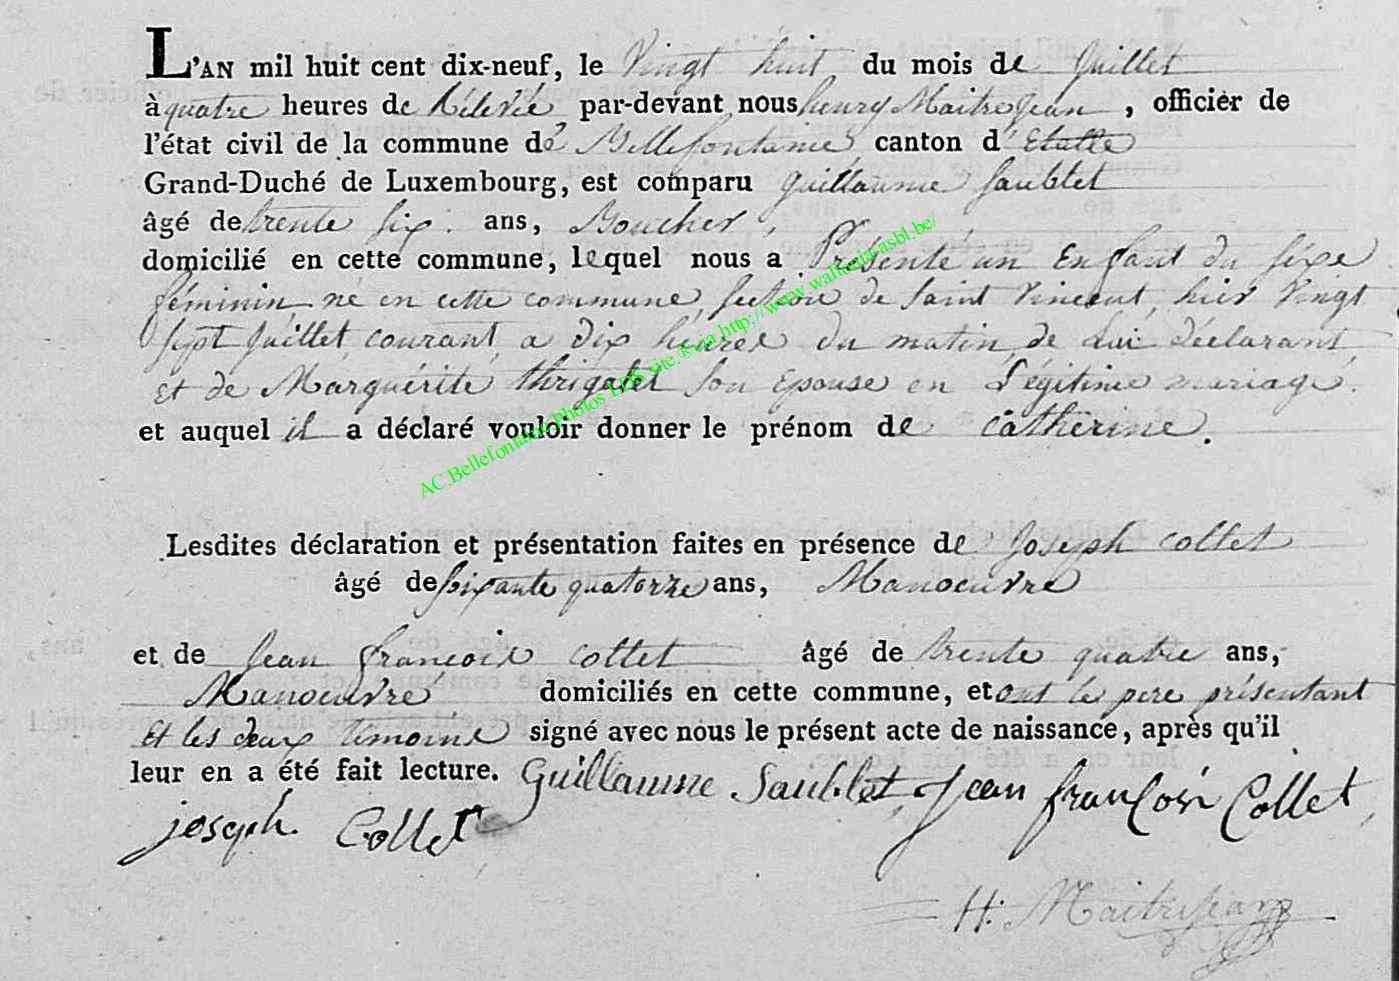 L'AN mil huit cent dix-neuf, le Vingt huit du mois de Juillet
à quatre heures de Rélevée par-devant nous henry Maitrejean, officier de
l'état civil de la commune de Bellefontaine canton d'Etalle
Grand-Duché de Luxembourg, est comparu guillaume Saublet
âgé de trente six ans, Boucher,
domicilié en cette commune, lequel nous a Présenté un Enfant du sexe
féminin né en cette commune, section de Saint Vincent, hier Vingt
sept Juillet courant a dix heures du matin, de Lui déclarant
et de Marguérite thrigatet son Epouse en Légitime mariage.
et auquel il a déclaré vouloir donner le prénom de Catherine.
AC.Bellefontaine Photos via http://www.walthair-asbl.be/
Lesdites déclaration et présentation faites en présence de Joseph collet
âgé de soixante quatorze ans, Manoeuvre
et de Jean françois collet âgé de trente quatre ans,
Manoeuvre domiciliés en cette commune, et ont le pere présentant
Et les deux témoins signé avec nous le présent acte de naissance, après qu'il
leur en a été fait lecture. Guillaume Saublet, Jean françois Collet,
joseph Collet
H. Maitrejean